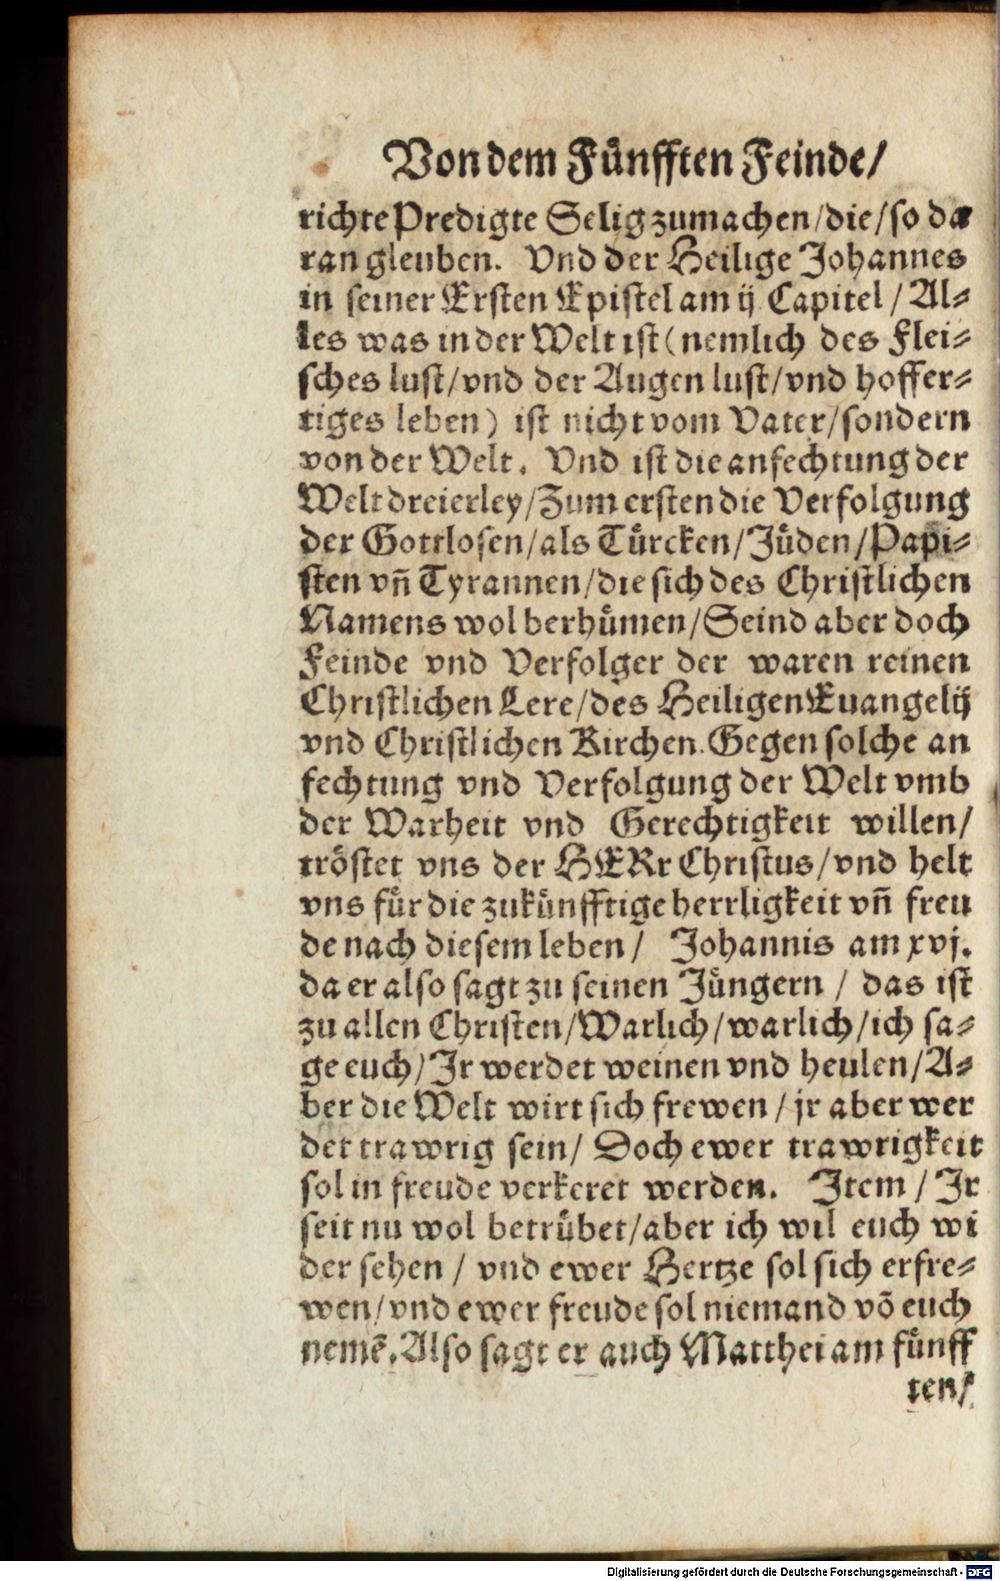 Von dem Fuͤnfften Feinde/
richte Predigte Selig zumachen/die/so da
ran gleuben. Vnd der Heilige Johannes
in seiner Ersten Epistel am ij Capitel / Al⸗
les was in der Welt ist (nemlich des Flei⸗
sches lust/vnd der Augen lust/vnd hoffer⸗
tiges leben) ist nicht vom Vater/sondern
von der Welt. Vnd ist die anfechtung der
Welt dreierley/Zum ersten die Verfolgung
der Gottlosen/als Tuͤrcken/Juͤden/Papi⸗
sten vñ Tyrannen/die sich des Christlichen
Namens wol berhuͤmen/Seind aber doch
Feinde vnd Verfolger der waren reinen
Christlichen Lere/des Heiligen Euangelij
vnd Christlichen Kirchen. Gegen solche an
fechtung vnd Verfolgung der Welt vmb
der Warheit vnd Gerechtigkeit willen/
troͤstet vns der HERr Christus/vnd helt
vns fuͤr die zukuͤnfftige herrligkeit vñ freu
de nach diesem leben / Johannis am xvj.
da er also sagt zu seinen Juͤngern / das ist
zu allen Christen/Warlich/warlich/ich sa⸗
ge euch/Ir werdet weinen vnd heulen/A⸗
ber die Welt wirt sich frewen / jr aber wer
det trawrig sein/ Doch ewer trawrigkeit
sol in freude verkeret werden. Item / Ir
seit nu wol betruͤbet/aber ich wil euch wi
der sehen / vnd ewer Hertze sol sich erfre⸗
wen/vnd ewer freude sol niemand võ euch
nemẽ. Also sagt er auch Matthei am fuͤnff
ten/
Digitalisierung gefördert durch die Deutsche Forschungsgemeinschaft - DFG